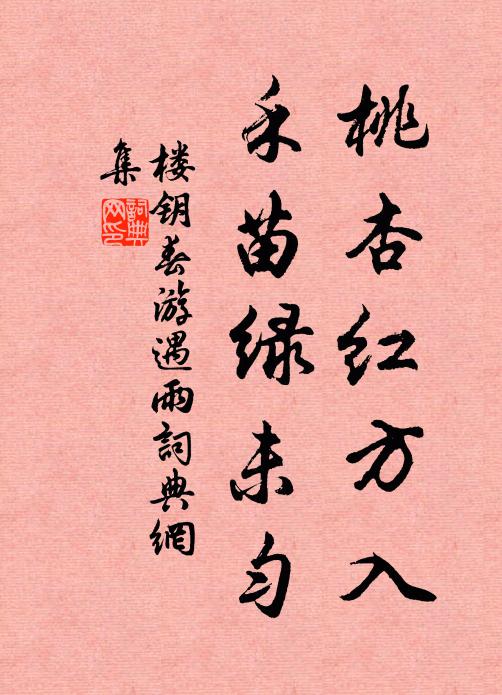 桃杏红方入
禾苗绿未匀
楼钥春游遇雨词典網
集
詞典
网印